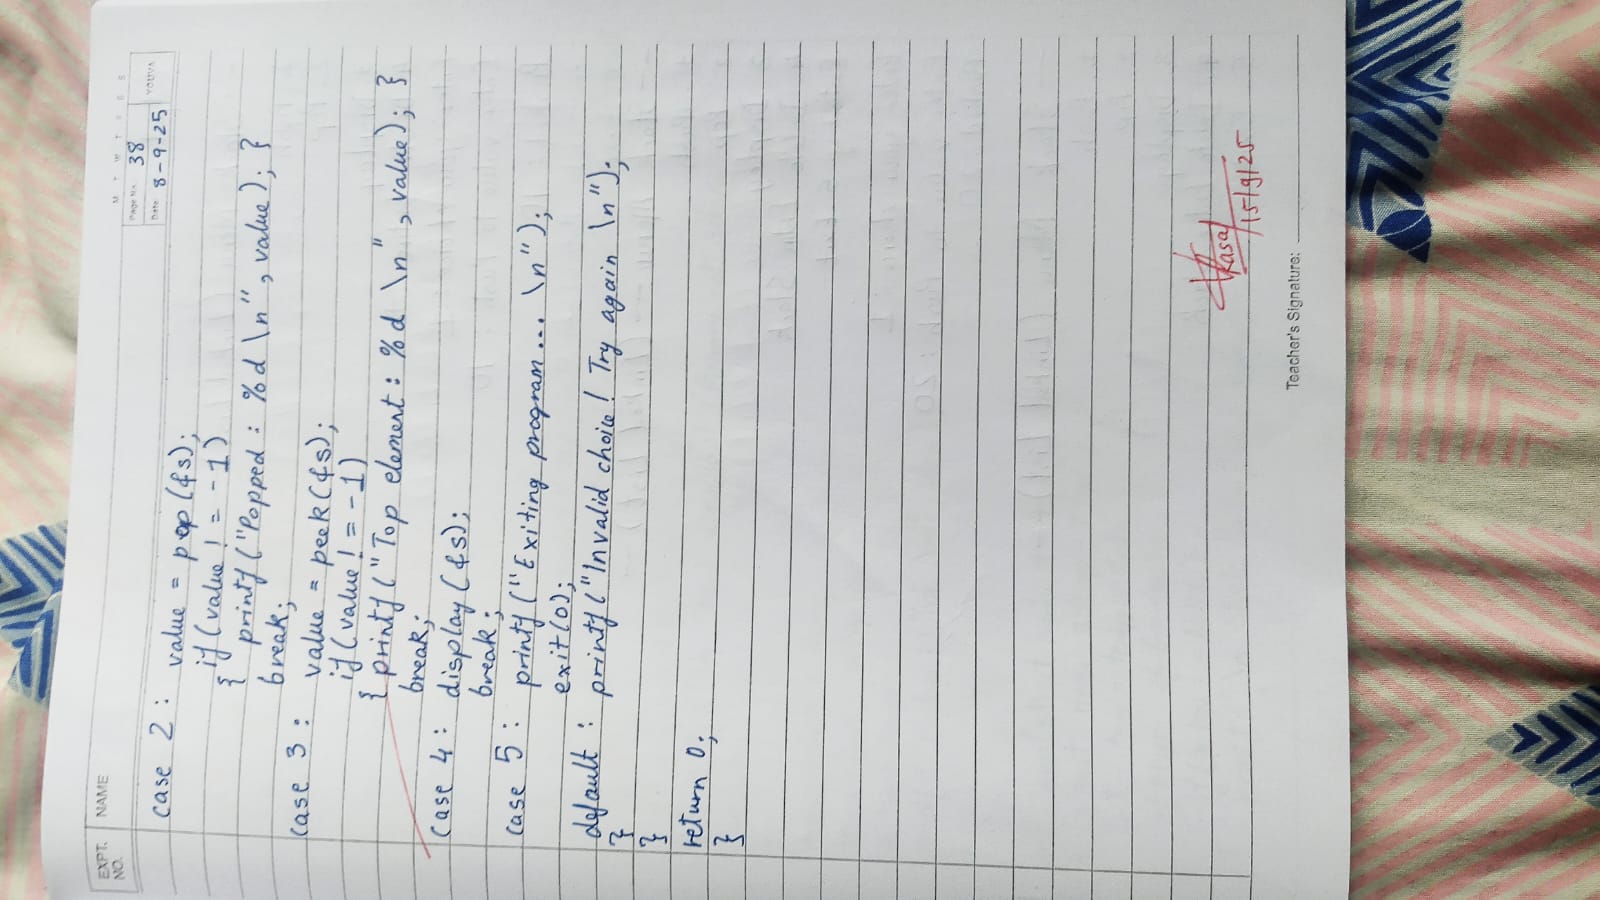 EXPT. NO.
NAME
M T W T F S S
Page No. 38
Date 8-9-25
YOUVA
case 2 : value = pop (&s);
if (value ! = -1)
{ printf ("Popped : %d \n", value); }
break;
case 3 : value = peek (&s);
if (value ! = -1)
{ printf ("Top element : %d \n", value); }
break;
case 4 : display (&s);
break;
case 5 : printf ("Exiting program ... \n");
exit(0);
default : printf ("Invalid choice! Try again \n");
}
}
return 0;
}
15/9/25
Teacher's Signature: